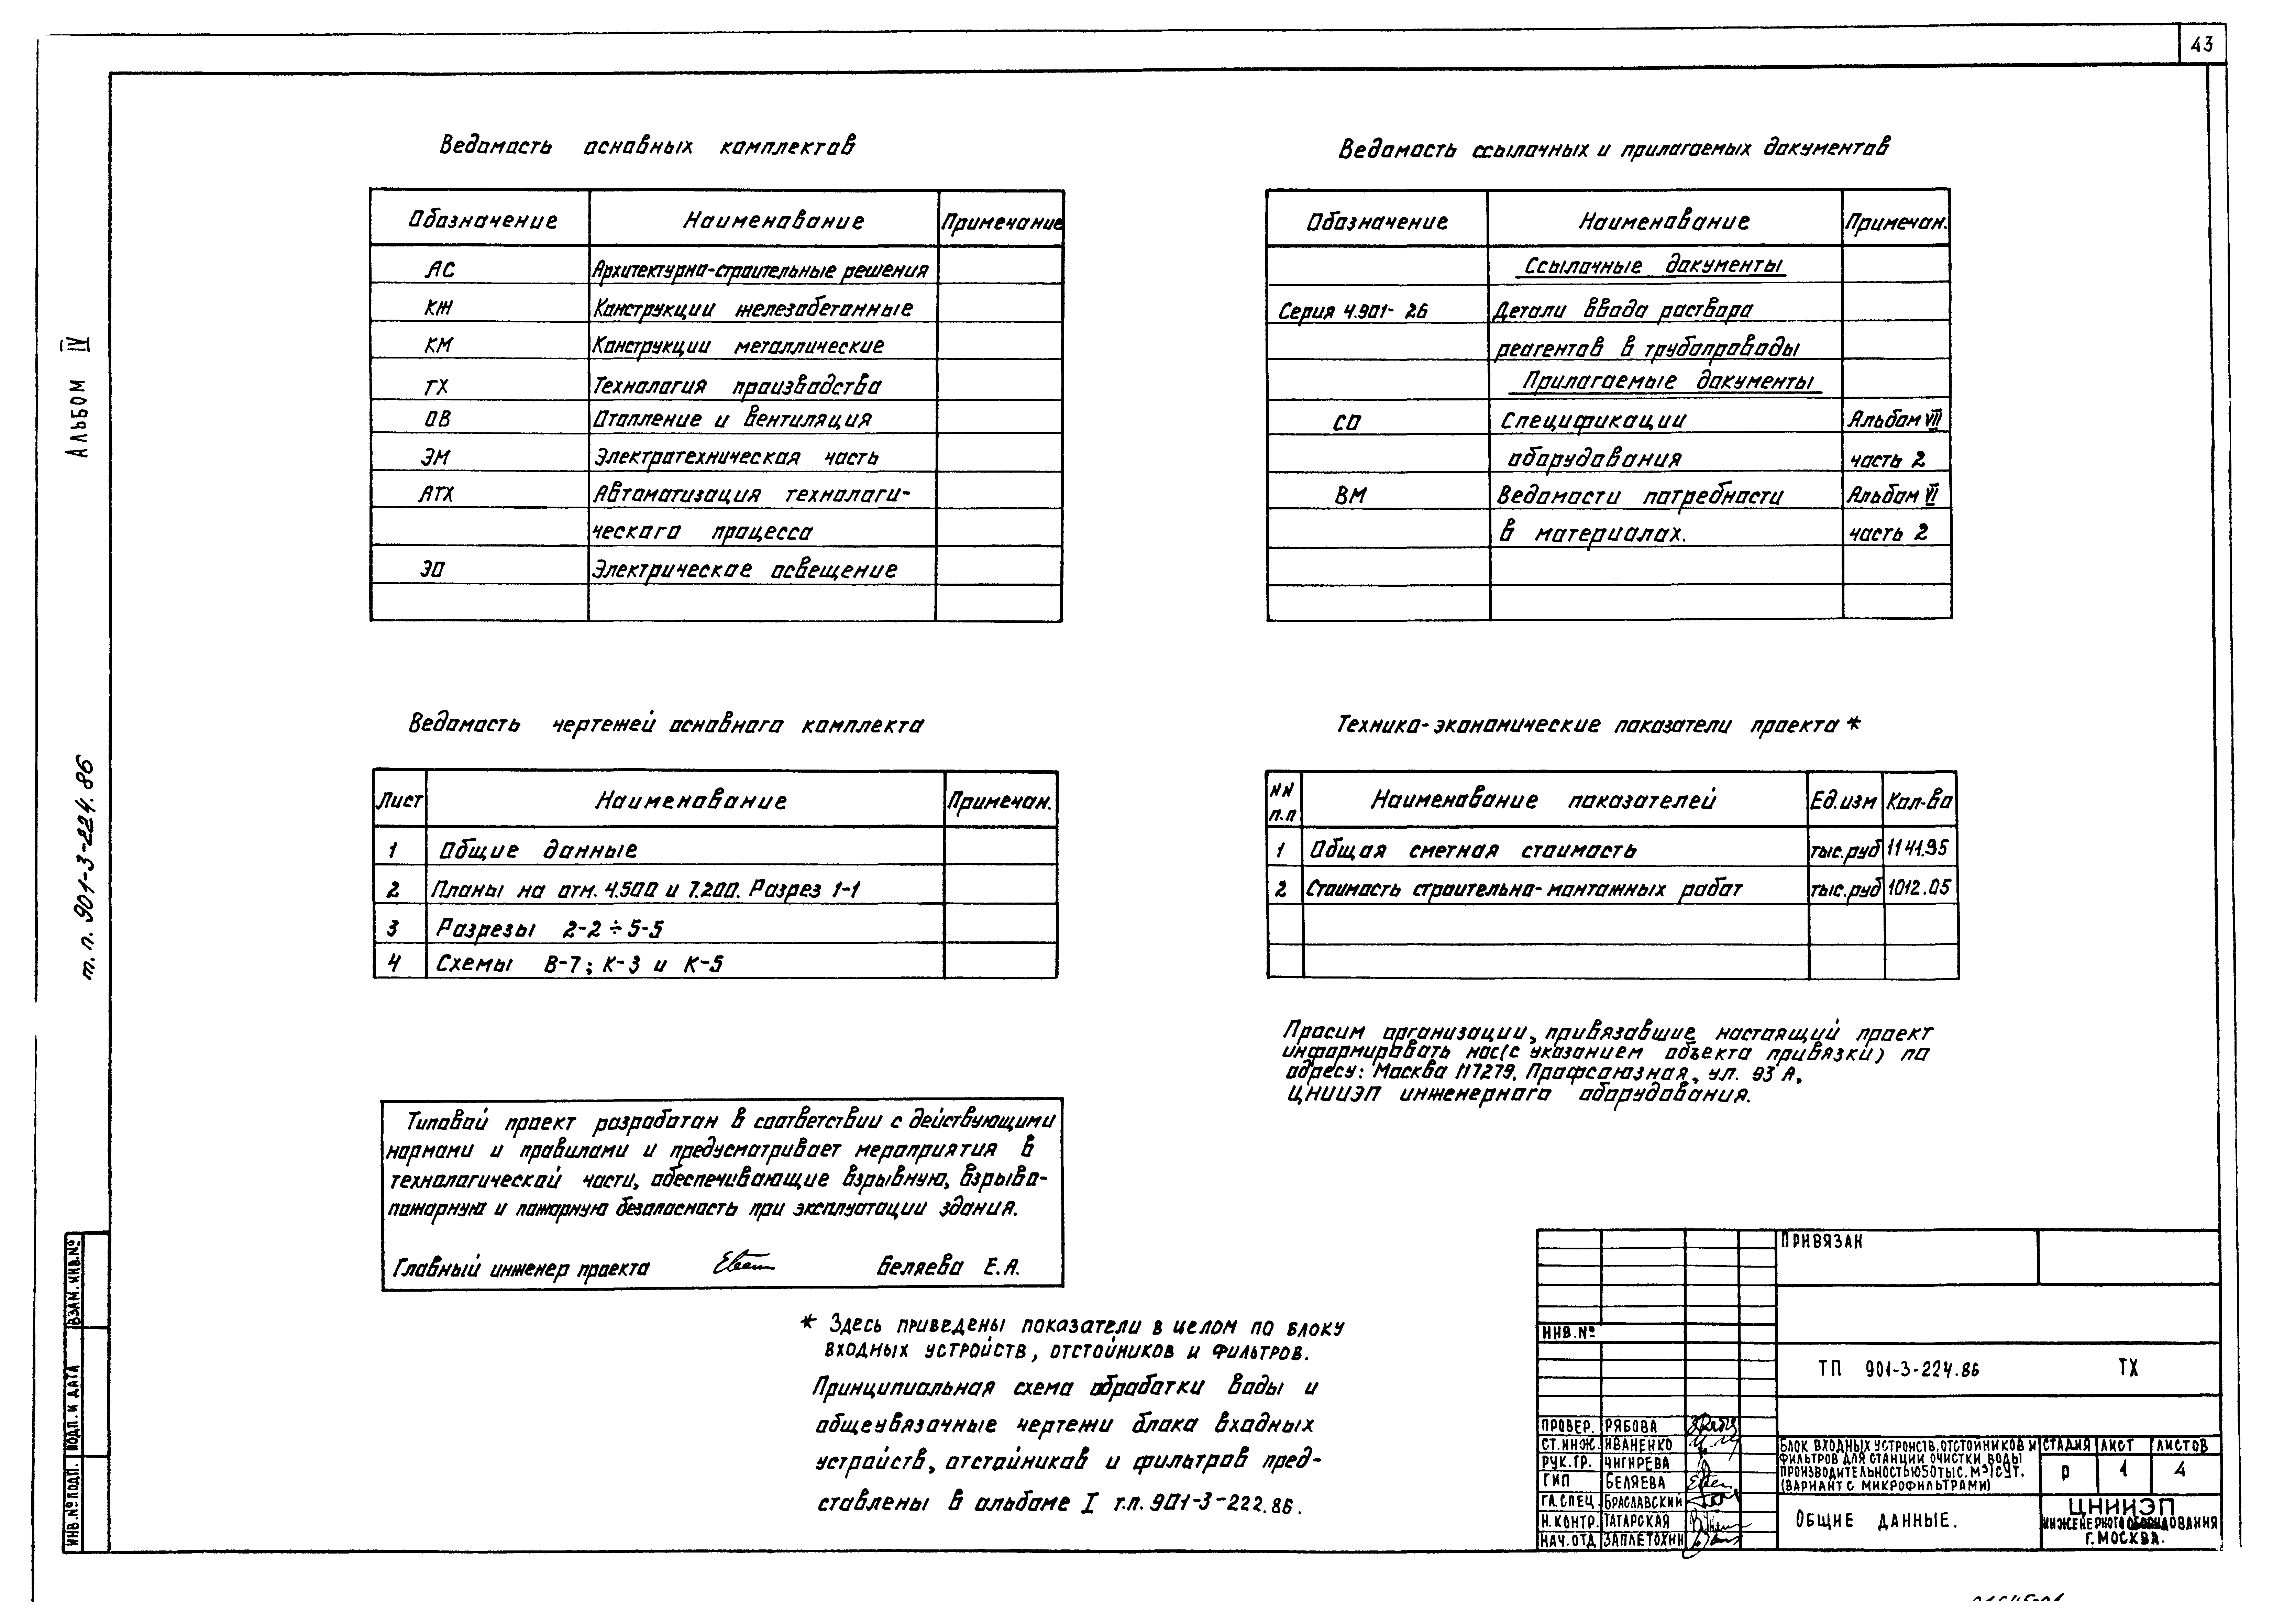 43
Альбом IV
т. п. 901-3-224.86
Ведомость основных комплектов
Обозначение Наименование Примечание
АС Архитектурно-строительные решения
КЖ Конструкции железобетонные
КМ Конструкции металлические
ТХ Технология производства
ОВ Отопление и вентиляция
ЭМ Электротехническая часть
АТХ Автоматизация технологи-
ческого процесса
ЭО Электрическое освещение
Ведомость ссылочных и прилагаемых документов
Обозначение Наименование Примечан.
Ссылочные документы
Серия 4.901-26 Детали ввода раствора
реагентов в трубопроводы
Прилагаемые документы
СО Спецификации Альбом VII
оборудования часть 2
ВМ Ведомости потребности Альбом VI
в материалах. часть 2
Ведомость чертежей основного комплекта
Лист Наименование Примечан.
1 Общие данные
2 Планы на отм. 4.500 и 7.200. Разрез 1-1
3 Разрезы 2-2÷5-5
4 Схемы В-7; К-3 и К-5
Технико-экономические показатели проекта *
NN п.п Наименование показателей Ед.изм Кол-во
1 Общая сметная стоимость тыс.руб 1141.95
2 Стоимость строительно-монтажных работ тыс.руб 1012.05
Просим организации, привязавшие настоящий проект
информировать нас (с указанием объекта привязки) по
адресу: Москва 117279, Профсоюзная, ул. 93 А,
ЦНИИЭП инженерного оборудования.
Типовой проект разработан в соответствии с действующими
нормами и правилами и предусматривает мероприятия в
технологической части, обеспечивающие взрывную, взрыво-
пожарную и пожарную безопасность при эксплуатации здания.
Главный инженер проекта Беляева Е.А.
* Здесь приведены показатели в целом по блоку
входных устройств, отстойников и фильтров.
Принципиальная схема обработки воды и
общеувязочные чертежи блока входных
устройств, отстойников и фильтров пред-
ставлены в альбоме I т.п. 901-3-222.86.
ПРИВЯЗАН
ИНВ.№
ТП 901-3-224.86 ТХ
ПРОВЕР. РЯБОВА
СТ.ИНЖ. ИВАНЕНКО
РУК.ГР. ЧИГИРЕВА
ГИП БЕЛЯЕВА
ГЛ.СПЕЦ. БРАСЛАВСКИЙ
Н.КОНТР. ТАТАРСКАЯ
НАЧ.ОТД ЗАПЛЕТОХИН
БЛОК ВХОДНЫХ УСТРОЙСТВ, ОТСТОЙНИКОВ И
ФИЛЬТРОВ ДЛЯ СТАНЦИИ ОЧИСТКИ ВОДЫ
ПРОИЗВОДИТЕЛЬНОСТЬЮ 50 ТЫС. М³/СУТ.
(ВАРИАНТ С МИКРОФИЛЬТРАМИ)
СТАДИЯ ЛИСТ ЛИСТОВ
Р 1 4
ОБЩИЕ ДАННЫЕ.
ЦНИИЭП
ИНЖЕНЕРНОГО ОБОРУДОВАНИЯ
Г. МОСКВА.
ВЗАМ. ИНВ.№
ПОДП. И ДАТА
ИНВ.№ ПОДП.